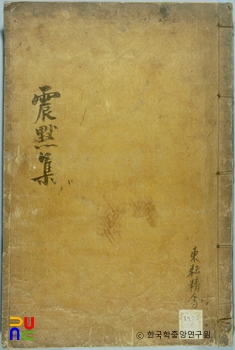 震默集
東耘精舍
© 한국학중앙연구원